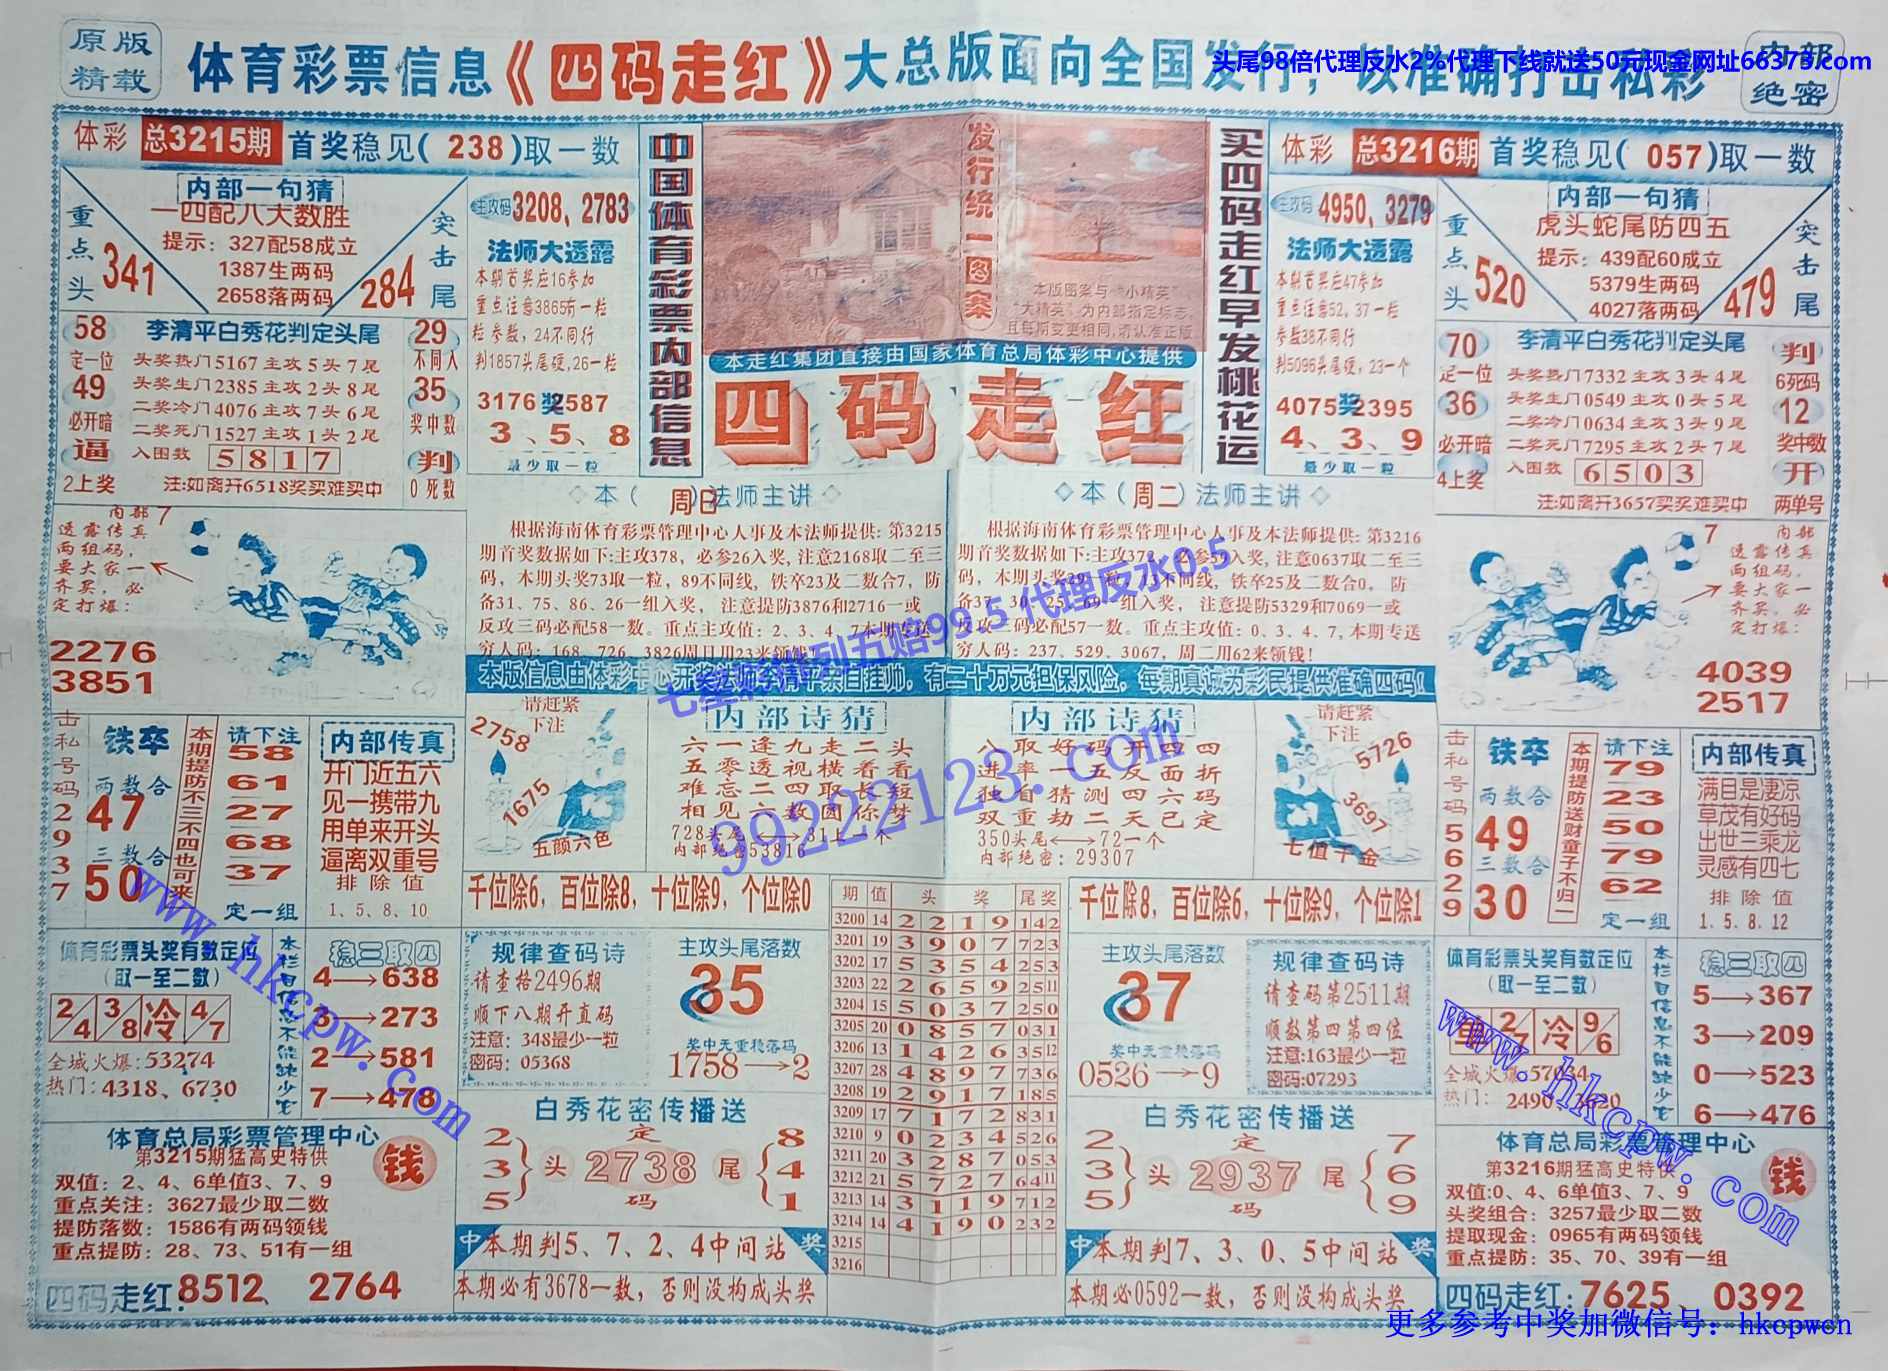 原版
精载
体育彩票信息《四码走红》大总版面向全国发行，以准确打击私彩
头尾98倍代理反水2%代理下线就送50元现金网址66373.com
内部
绝密
体彩 总3215期 首奖稳见(238)取一数
内部一句猜
一四配八大数胜
提示：327配58成立
1387生两码
2658落两码
重点头
341
突击尾
284
主攻码 3208、2783
法师大透露
本期首奖应16参加
重点注意3865有一粒
粒参数,24不同行
判1857头尾硬,26一粒
3176奖587
3、5、8
最少取一粒
58
定一位
49
必开暗
逼
2上奖
李清平白秀花判定头尾
头奖热门5167主攻5头7尾
头奖生门2385主攻2头8尾
二奖冷门4076主攻7头6尾
二奖死门1527主攻1头2尾
入围数 5 8 1 7
注:如离开6518奖买难买中
29
不同入
35
奖中数
判
0死数
中国体育彩票内部信息
发行统一图案
本版图案与“小精英”
“大精英”为内部指定标志
且每期变更相同,请认准正版
本走红集团直接由国家体育总局体彩中心提供
四码走红
买四码走红早发桃花运
体彩 总3216期 首奖稳见(057)取一数
主攻码 4950、3279
法师大透露
本期首奖应47参加
重点注意52,37一粒
参数38不同行
判5096头尾硬,23一个
4075奖2395
4、3、9
最少取一粒
内部一句猜
虎头蛇尾防四五
提示：439配60成立
5379生两码
4027落两码
重点头
520
突击尾
479
70
定一位
36
必开暗
4上奖
李清平白秀花判定头尾
头奖热门7332主攻3头4尾
头奖生门0549主攻0头5尾
二奖冷门0634主攻3头9尾
二奖死门7295主攻2头7尾
入围数 6 5 0 3
注:如离开3657买奖难买中
判
6死码
12
奖中数
开
两单号
内部
透露传真
两组码,
要大家一
齐买,必
定打爆:
7
2276
3851
◇本（周日）法师主讲◇
根据海南体育彩票管理中心人事及本法师提供: 第3215
期首奖数据如下:主攻378，必参26入奖,注意2168取二至三
码，本期头奖73取一粒，89不同线，铁卒23及二数合7，防
备31、75、86、26一组入奖，注意提防3876和2716一或
反攻三码必配58一数。重点主攻值：2、3、4、7本期专送
穷人码：168、726、3826周日用23来领钱!
◇本（周二）法师主讲◇
根据海南体育彩票管理中心人事及本法师提供: 第3216
期首奖数据如下:主攻372，必参 入奖,注意0637取二至三
码，本期头奖29一粒，13不同线，铁卒25及二数合0，防
备37、30、25、69一组入奖，注意提防5329和7069一或
反攻三码必配57一数。重点主攻值：0、3、4、7,本期专送
穷人码：237、529、3067，周二用62来领钱!
七星彩排列五赔99.5 代理反水0.5
本版信息由体彩中心开奖法师李清平亲自挂帅，有二十万元担保风险，每期真诚为彩民提供准确四码!
内部
透露传真
两组码,
要大家一
齐买,必
定打爆:
7
4039
2517
击私号码29377
铁卒
两数合
47
三数合
50
本期提防不三不四也可来
请下注
58
61
27
68
37
定一组
内部传真
开门近五六
见一携带九
用单来开头
逼离双重号
排除值
1、5、8、10
请赶紧
下注
2758
1675
五颜六色
内部诗猜
六一逢九走二头
五零透视横着看
难忘二四取长短
相见六数圆你梦
728头尾⟷31上一个
内部绝密53816
内部诗猜
八取好码开四四
进率一五反面折
独自猜测四六码
双重劫二天已定
350头尾⟷72一个
内部绝密：29307
请赶紧
下注
5726
3697
七值千金
99222123.com
击私号码56629
铁卒
两数合
49
三数合
30
本期提防送财童子不归一
请下注
79
23
50
79
62
定一组
内部传真
满目是凄凉
草茂有好码
出世三乘龙
灵感有四七
排除值
1、5、8、12
千位除6，百位除8，十位除9，个位除0
千位除8，百位除6，十位除9，个位除1
期 值 头 奖 尾奖
3200 14 2 2 1 9 142
3201 19 3 9 0 7 723
3202 17 5 3 5 4 253
3203 22 2 6 5 9 2511
3204 15 5 0 3 7 250
3205 20 0 8 5 7 031
3206 13 1 4 2 6 3512
3207 28 4 8 9 7 736
3208 19 2 9 1 7 185
3209 17 7 1 7 2 831
3210 9 0 2 3 4 526
3211 20 3 2 8 7 053
3212 21 5 7 2 7 6411
3213 14 3 1 1 9 712
3214 14 4 1 9 0 232
3215
3216
体育彩票头奖有数定位
(取一至二数)
2/4 3/8 冷 4/7
全城火爆:53274
热门：4318、6730
本栏目信息不能缺少它
稳三取四
4→638
3→273
2→581
7→478
规律查码诗
请查格2496期
顺下八期开直码
注意：348最少一粒
密码：05368
主攻头尾落数
35
奖中无重稳落码
1758→2
主攻头尾落数
37
奖中无重稳落码
0526→9
规律查码诗
请查码第2511期
顺数第四第四位
注意:163最少一粒
密码:07293
体育彩票头奖有数定位
(取一至二数)
2/7 冷 9/6
全城火爆:57034
热门：2490、
本栏目信息不能缺少它
稳三取四
5→367
3→209
0→523
6→476
www.hkcpw.com
www.hkcpw.com
体育总局彩票管理中心
第3215期猛高史特供
钱
双值：2、4、6单值3、7、9
重点关注：3627最少取二数
提防落数：1586有两码领钱
重点提防：28、73、51有一组
四码走红:8512、2764
白秀花密传播送
2 3 5 头 定 2738 码 尾 8 4 1
中 本期判5、7、2、4中间站 奖
本期必有3678一数，否则没构成头奖
白秀花密传播送
2 3 5 头 定 2937 码 尾 7 6 9
中 本期判7、3、0、5中间站 奖
本期必0592一数，否则没构成头奖
体育总局彩票管理中心
第3216期猛高史特供
钱
双值:0、4、6单值3、7、9
头奖组合：3257最少取二数
提取现金：0965有两码领钱
重点提防：35、70、39有一组
四码走红:7625 0392
更多参考中奖加微信号：hkcpwcn